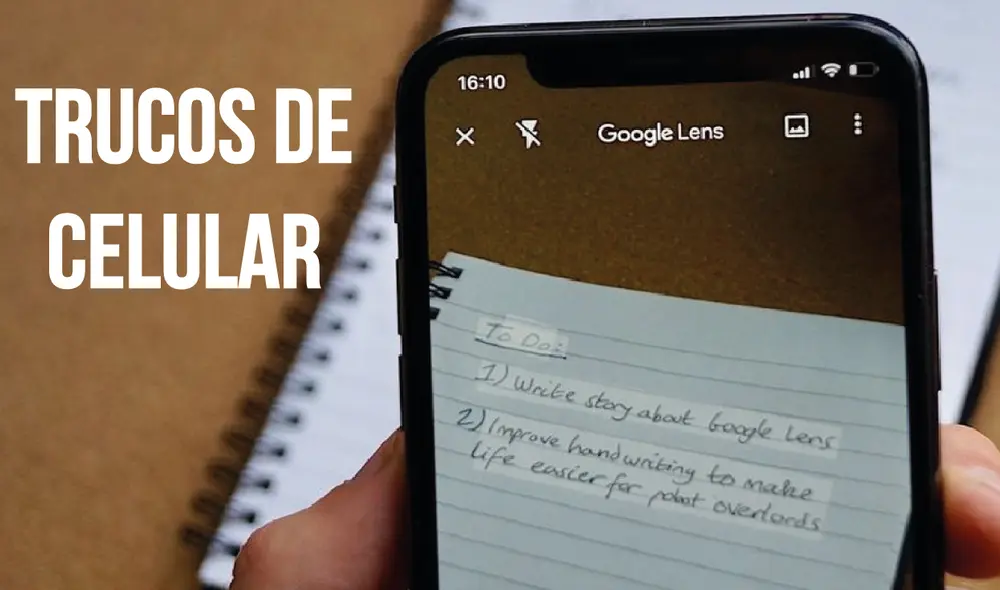 TRUCOS DE
CELULAR
16:10
Google Lens
To Do:
1) Write story about Google Lens
2) Improve handwriting to make
life easier for robot overlords